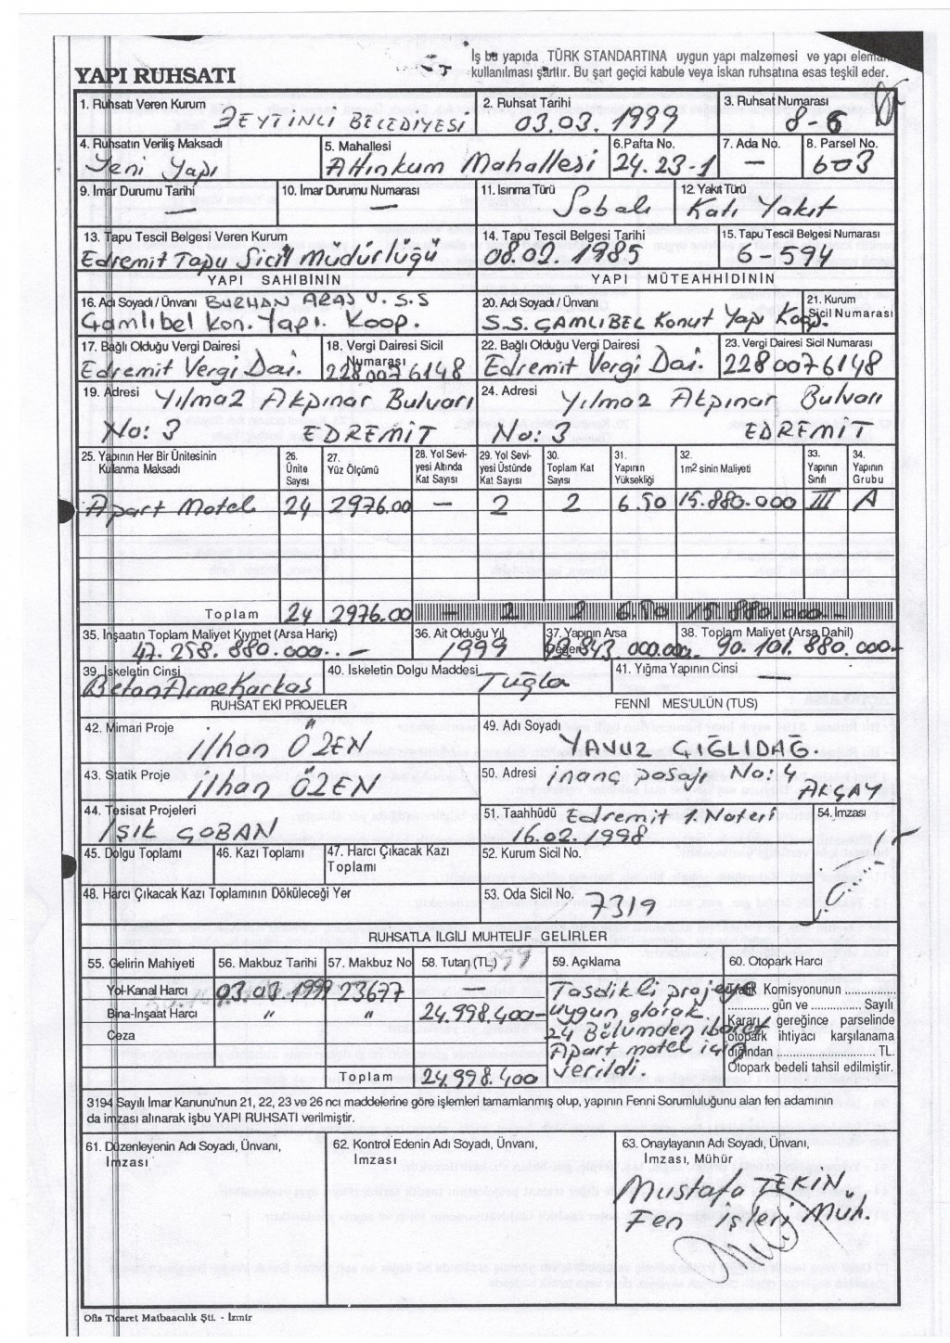 İş bu yapıda TÜRK STANDARTINA uygun yapı malzemesi ve yapı eleman
kullanılması şarttır. Bu şart geçici kabule veya iskan ruhsatına esas teşkil eder.
YAPI RUHSATI
1. Ruhsatı Veren Kurum
ZEYTİNLİ BELEDİYESİ
2. Ruhsat Tarihi
03.03.1999
3. Ruhsat Numarası
8-6
4. Ruhsatın Veriliş Maksadı
Yeni Yapı
5. Mahallesi
Altınkum Mahallesi
6.Pafta No.
24.23-1
7. Ada No.
—
8. Parsel No.
603
9. İmar Durumu Tarihi
—
10. İmar Durumu Numarası
—
11. Isınma Türü
Sobalı
12. Yakıt Türü
Katı Yakıt
13. Tapu Tescil Belgesi Veren Kurum
Edremit Tapu Sicil Müdürlüğü
14. Tapu Tescil Belgesi Tarihi
08.02.1985
15. Tapu Tescil Belgesi Numarası
6-594
YAPI SAHİBİNİN
YAPI MÜTEAHHİDİNİN
16. Adı Soyadı / Ünvanı BURHAN ARAS V.S.S
Çamlıbel Kon. Yapı. Koop.
20. Adı Soyadı / Ünvanı
S.S. ÇAMLIBEL Konut Yapı Koop.
21. Kurum
Sicil Numarası
17. Bağlı Olduğu Vergi Dairesi
Edremit Vergi Dai.
18. Vergi Dairesi Sicil
Numarası
2280076148
22. Bağlı Olduğu Vergi Dairesi
Edremit Vergi Dai.
23. Vergi Dairesi Sicil Numarası
2280076148
19. Adresi Yılmaz Akpınar Bulvarı
No: 3 EDREMİT
24. Adresi Yılmaz Akpınar Bulvarı
No: 3 EDREMİT
25. Yapının Her Bir Ünitesinin
Kullanma Maksadı
26.
Ünite
Sayısı
27.
Yüz Ölçümü
28. Yol Sevi-
yesi Altında
Kat Sayısı
29. Yol Sevi-
yesi Üstünde
Kat Sayısı
30.
Toplam Kat
Sayısı
31.
Yapının
Yüksekliği
32.
1m² sinin Maliyeti
33.
Yapının
Sınıfı
34.
Yapının
Grubu
Apart Motel 24 2976.00 — 2 2 6.50 15.880.000 III A
Toplam 24 2976.00 — 2 2 6.50 15.880.000.-
35. İnşaatın Toplam Maliyet Kıymet (Arsa Hariç)
47.258.880.000.-
36. Ait Olduğu Yıl
1999
37. Yapının Arsa
Değeri
42.843.000.000.-
38. Toplam Maliyet (Arsa Dahil)
90.101.880.000.-
39. İskeletin Cinsi
Betonarme Karkas
40. İskeletin Dolgu Maddesi
Tuğla
41. Yığma Yapının Cinsi
—
RUHSAT EKİ PROJELER
FENNİ MES'ULÜN (TUS)
42. Mimari Proje
İlhan ÖZEN
49. Adı Soyadı
YAVUZ ÇIĞLIDAĞ.
43. Statik Proje
İlhan ÖZEN
50. Adresi inanç pasajı No: 4
AKÇAY
44. Tesisat Projeleri
Işık ÇOBAN
51. Taahhüdü Edremit 1. Noteri
16.02.1998
54. İmzası
45. Dolgu Toplamı
46. Kazı Toplamı
47. Harcı Çıkacak Kazı
Toplamı
52. Kurum Sicil No.
48. Harcı Çıkacak Kazı Toplamının Döküleceği Yer
53. Oda Sicil No.
7319
RUHSATLA İLGİLİ MUHTELİF GELİRLER
55. Gelirin Mahiyeti
56. Makbuz Tarihi
57. Makbuz No
58. Tutarı (TL)
59. Açıklama
60. Otopark Harcı
Yol-Kanal Harcı 03.03.1999 23677 —
Bina-İnşaat Harcı " " 24.998.400-
Ceza
Toplam 24.998.400
Tasdikli projeye
uygun olarak
24 Bölümden ibaret
Apart motel için
verildi.
Komisyonunun ..............
.............. gün ve .......... Sayılı
Kararı gereğince parselinde
otopark ihtiyacı karşılanama
dığından ........................ TL.
Otopark bedeli tahsil edilmiştir.
3194 Sayılı İmar Kanunu'nun 21, 22, 23 ve 26 ncı maddelerine göre işlemleri tamamlanmış olup, yapının Fenni Sorumluluğunu alan fen adamının
da imzası alınarak işbu YAPI RUHSATI verilmiştir.
61. Düzenleyenin Adı Soyadı, Ünvanı,
İmzası
62. Kontrol Edenin Adı Soyadı, Ünvanı,
İmzası
63. Onaylayanın Adı Soyadı, Ünvanı,
İmzası, Mühür
Mustafa TEKİN
Fen işleri Müh.
Ofis Ticaret Matbaacılık Şti. - İzmir